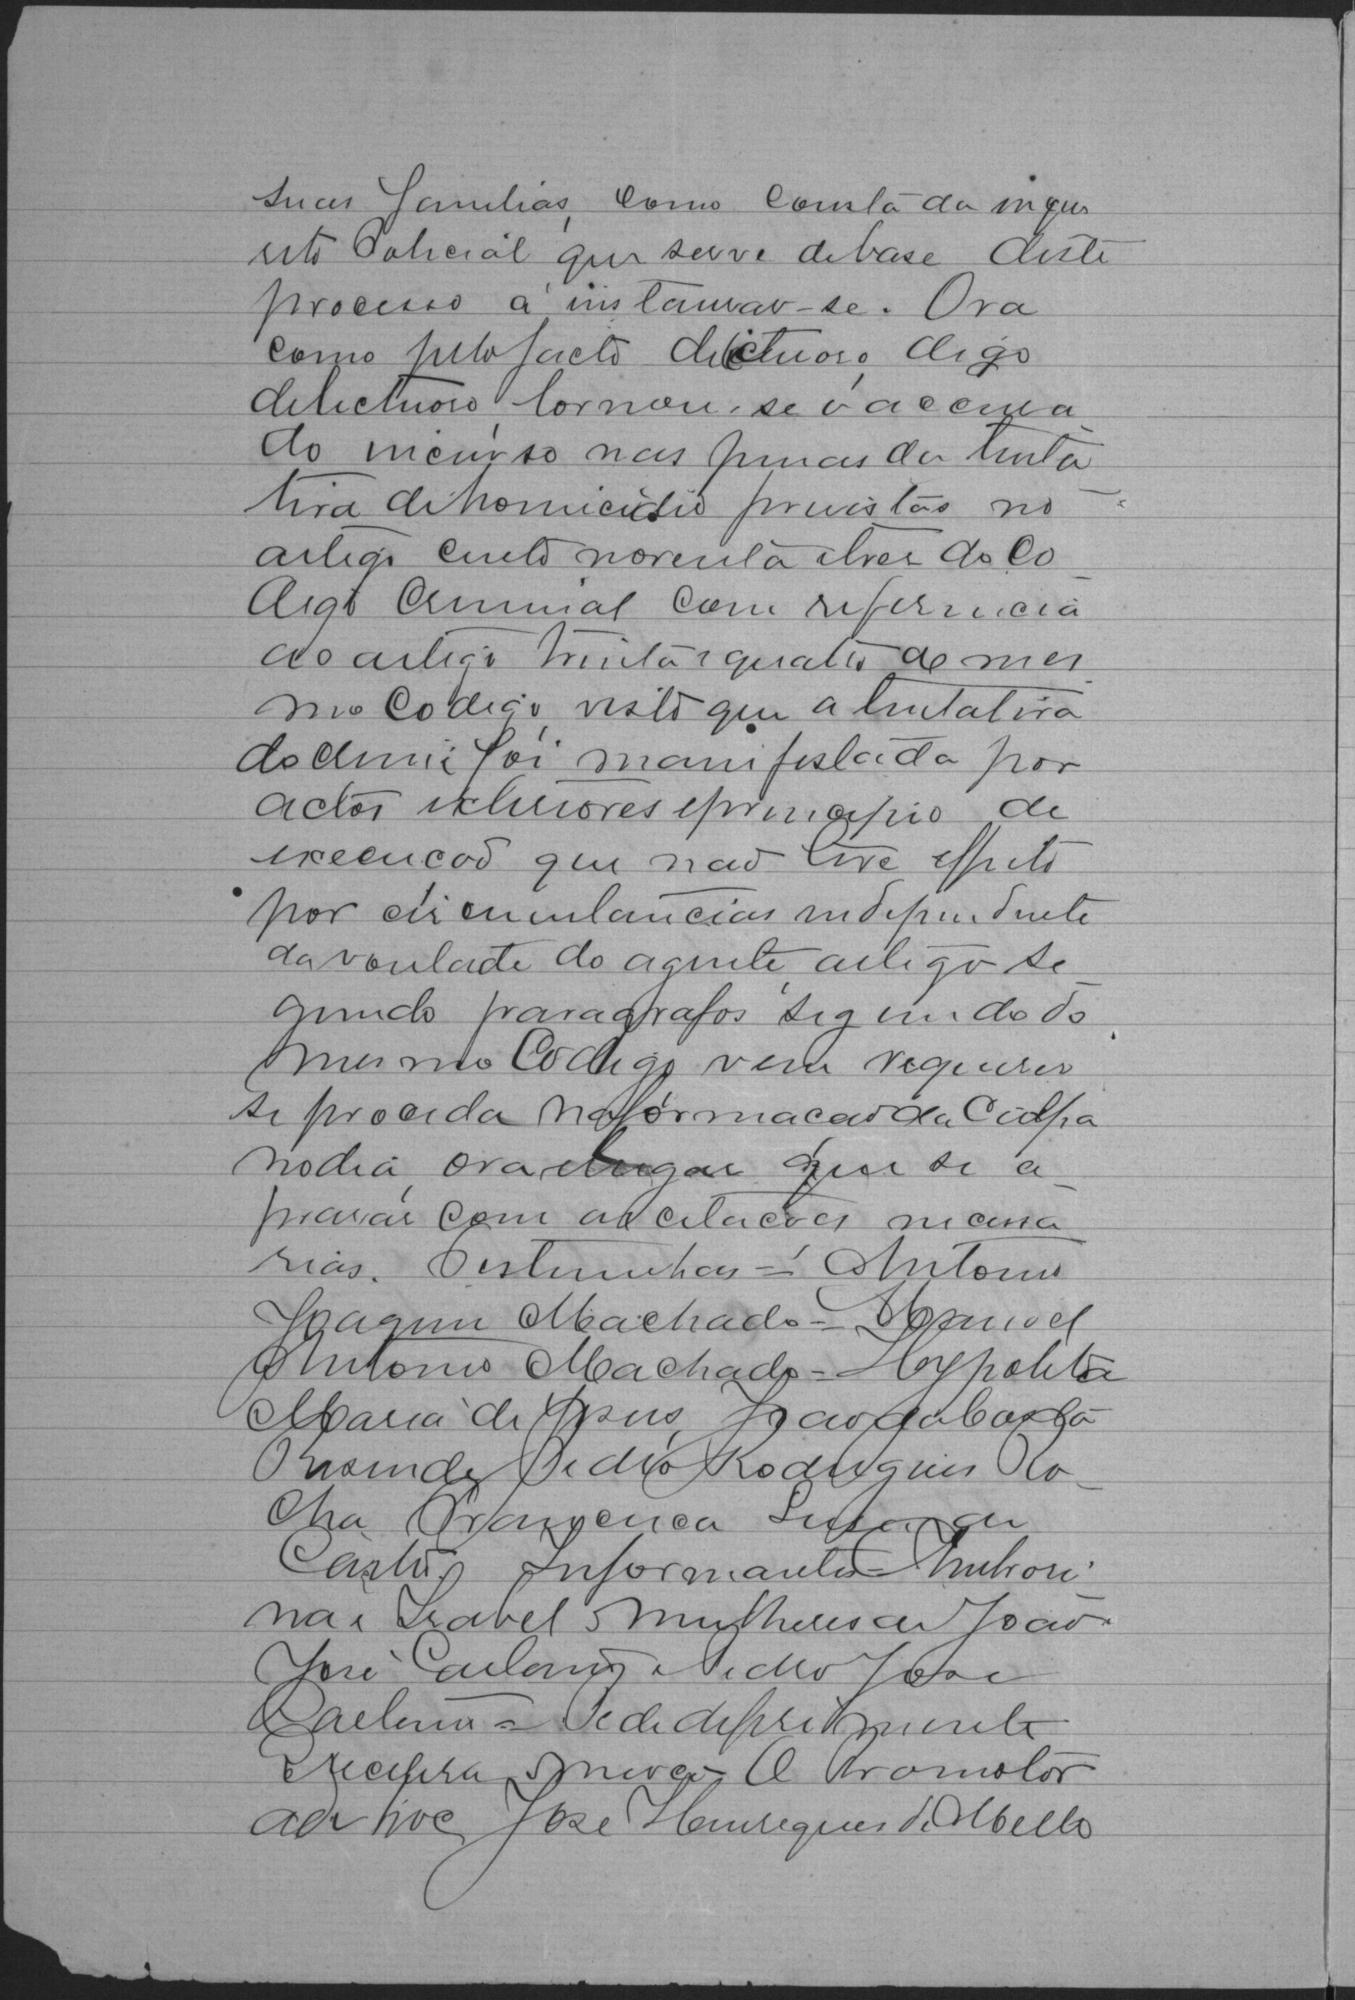 suas familias, como consta da inque
rito Policial que serve de base deste
processo a instaurar-se. Ora
como pelo facto delictuoso, digo
delictuoso, tornou-se o accusa
do incurso nas penas da tenta
tiva de homicidio previstas no
artigo cento noventa e tres do Co
digo Criminal com referencia
ao artigo trinta e quatro do mes
mo Codigo, visto que a tentativa
do crime foi manifestada por
actos exteriores e principio de
execucaõ que naõ teve effeito
por circunstancias independente
da vontade do agente, artigo se
gundo paragrafos segundo do
mesmo Codigo vem requerer
se proceda na formacaõ da Culpa
no dia, ora e lugar que se a
prasar com as citacoes necessa
rias. Testemunhas = Antonio
Joaquim Machado = Manoel
Antonio Machado = Hypolita
Maria de Jesus, Joaõ da Costa
Resende, Pedro Rodrigues Ro
cha, Francisca de
Castro, Informantes = Ambrosi
na e Izabel, mulheres de Joaõ
José Caetano e Pedro José
Caetano = Pede deferimento
E recebera merce O Promotor
ad hoc, José Henriques de Mello